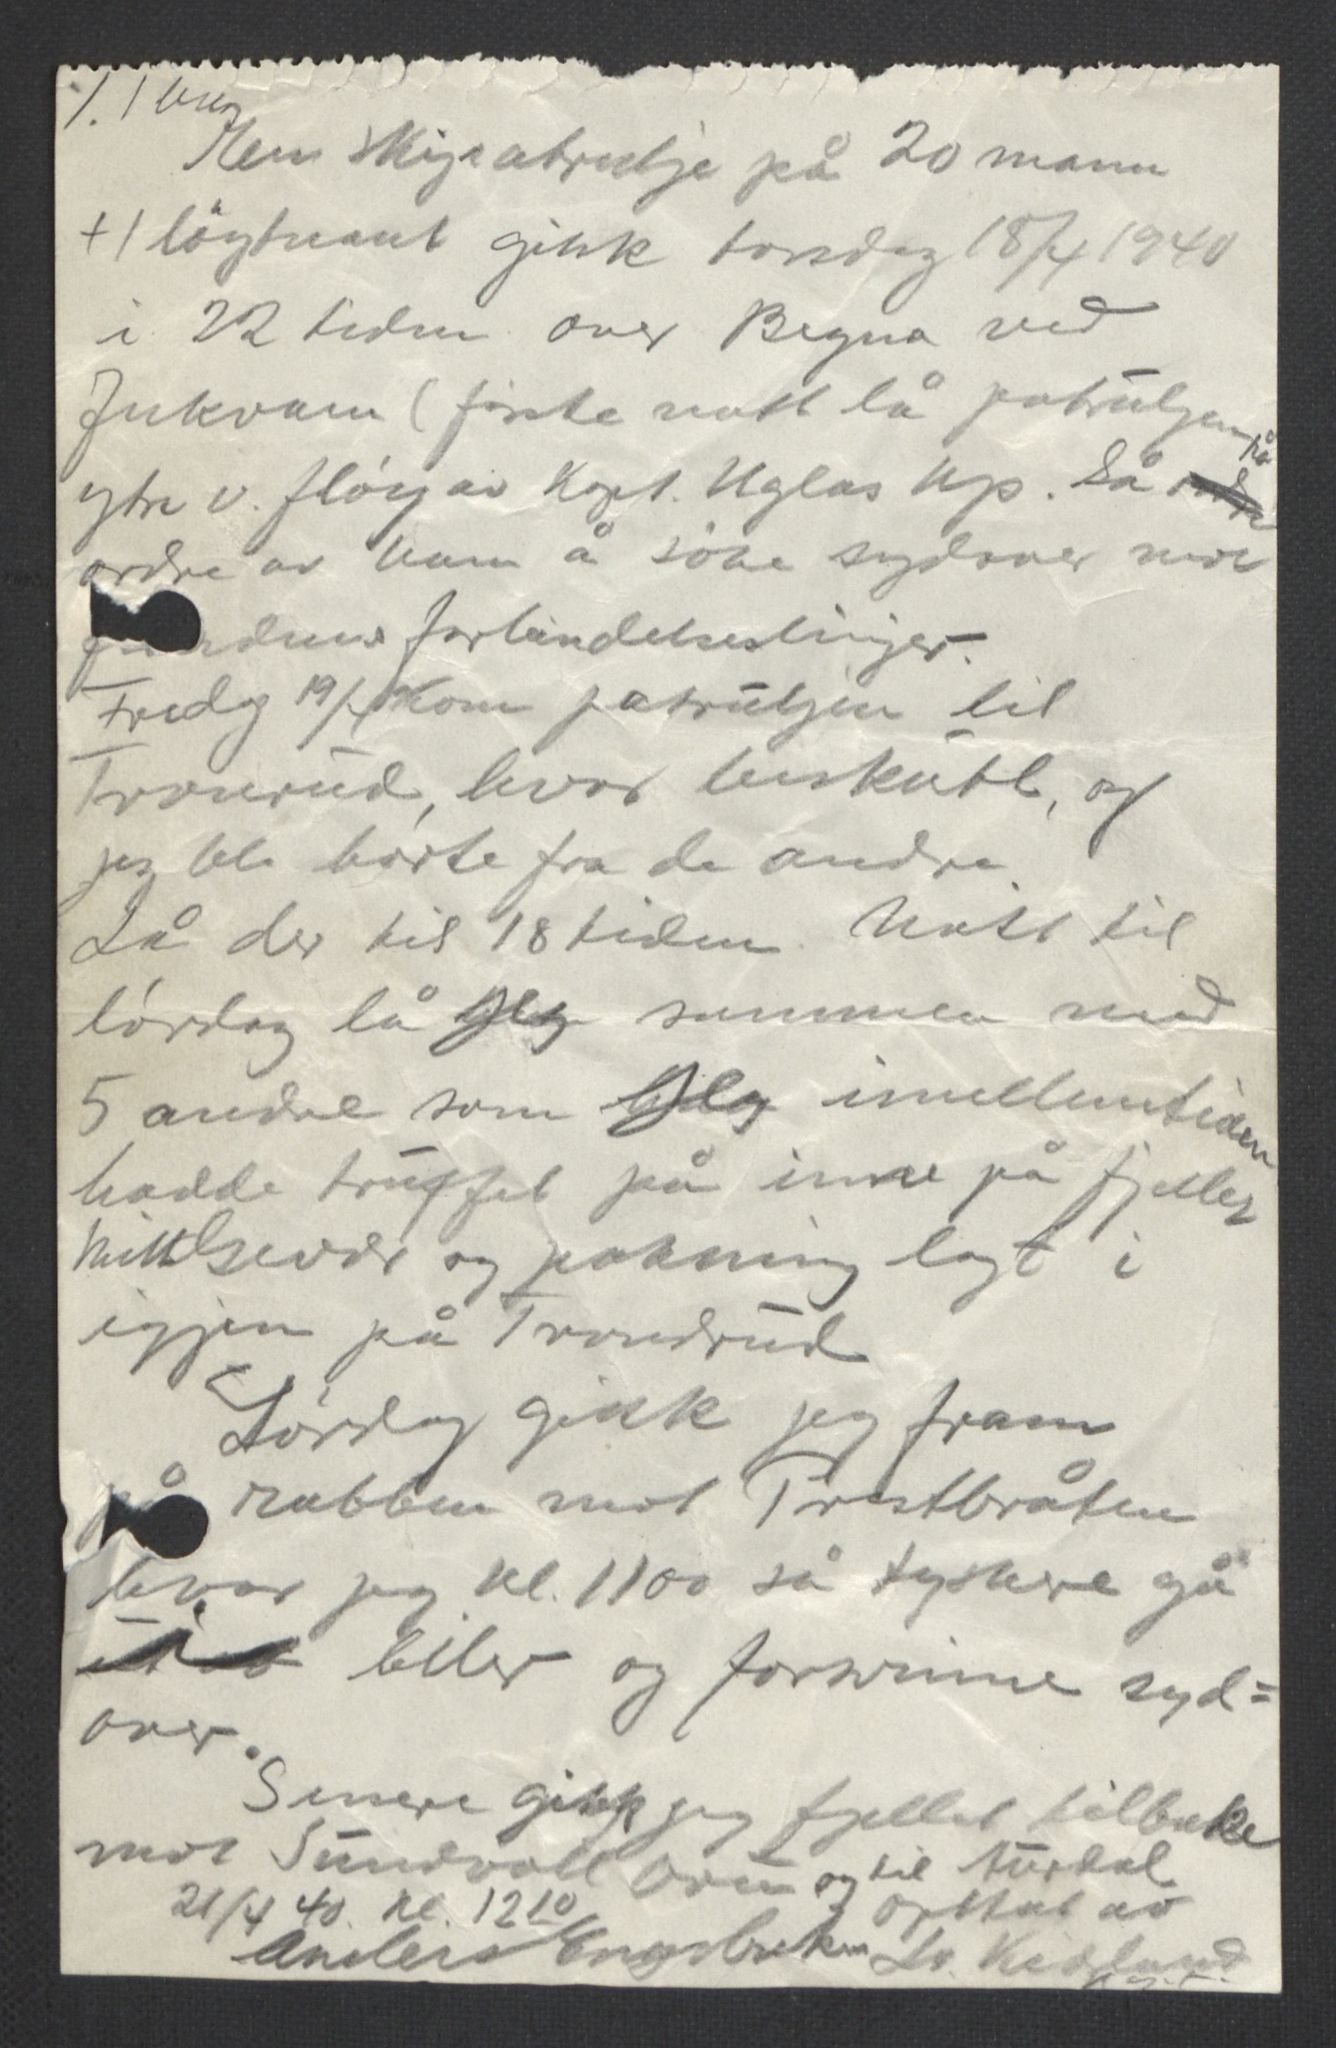 Men skipatrulje på 20 mann
+1 löytnant gikk torsdag 18/4 1940
i 22 tiden over Begna ved
Jukvam (første natt lå patrüljen på
ytre v. fløy av Kapt. Uglas Kp. Så
ordre av ham å søke sydover mot
forbindelseslinjer.
Fredg 19/4 kom patrüljen til
Tronrüd, hvor beskütt, og
jeg ble börte fra de andre.
Lå der til 18 tiden. Natt til
lördag lå jeg sammen med
5 andre som jeg imellemtiden
hadde trüffet på inne på fjellet
Mitt Gevær og pakning lagt i
igjen på Trondrüd
Lördag gikk jeg fram
på rabben mot Trostbråten
hvor jeg kl. 1100 så tyskere gå
biler og forsvinne syd=
over.
Senere gikk jeg fjellet tilbake
mot Sündvoll og til
21/4 40. Kl. 1210 opttat av
Anders Engebretsen Lt.